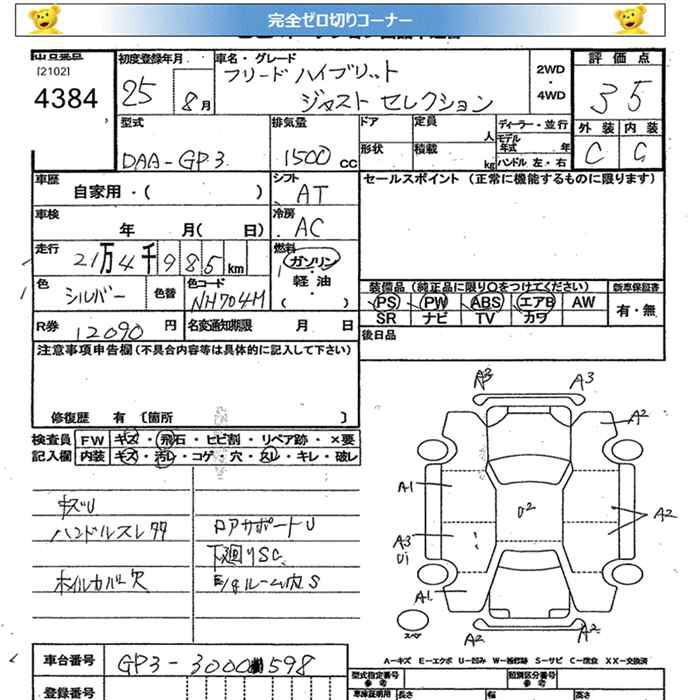 完全ゼロ切りコーナー
[2102]
4384
初度登録年月
25 8月
車名・グレード
フリードハイブリット
ジャストセレクション
2WD
・
4WD
評価点
3 5
外装 内装
C C
型式
DAA-GP3
排気量
1500 cc
ドア
形状
定員 人
積載 kg
ディーラー・並行
モデル年式 年
ハンドル 左・右
車歴
自家用・( )
シフト
AT
車検
年 月( 日)
冷房
AC
走行
21万4千985km
燃料
ガソリン
・
軽油
・
( )
色
シルバー
色替
色コード
NH704M
R券 12090 円
名変通知期限 月 日
セールスポイント (正常に機能するものに限ります)
装備品 (純正品に限り○をつけてください)
新車保証書
PS PW ABS エアB AW
有・無
SR ナビ TV カワ
後日品
注意事項申告欄(不具合内容等は具体的に記入して下さい)
修復歴 有 〔箇所 〕
検査員 FW キズ・飛石・ヒビ割・リペア跡・×要
記入欄 内装 キズ・汚レ・コゲ・穴・スレ・キレ・破レ
キズU
ハンドルスレ
ロアサポートU
下廻りSC
ホイルカバー欠
E/gルーム内S
A3 A3
A2
A1
U2
A2
A3
U1
A1
スペア
A2 A2
A-キズ E-エクボ U-凹み W-補修跡 S-サビ C-腐食 XX-交換済
車台番号 GP3-3000598
登録番号
型式指定番号
参考
類別区分番号
参考
車庫証明用 長さ 幅 高さ